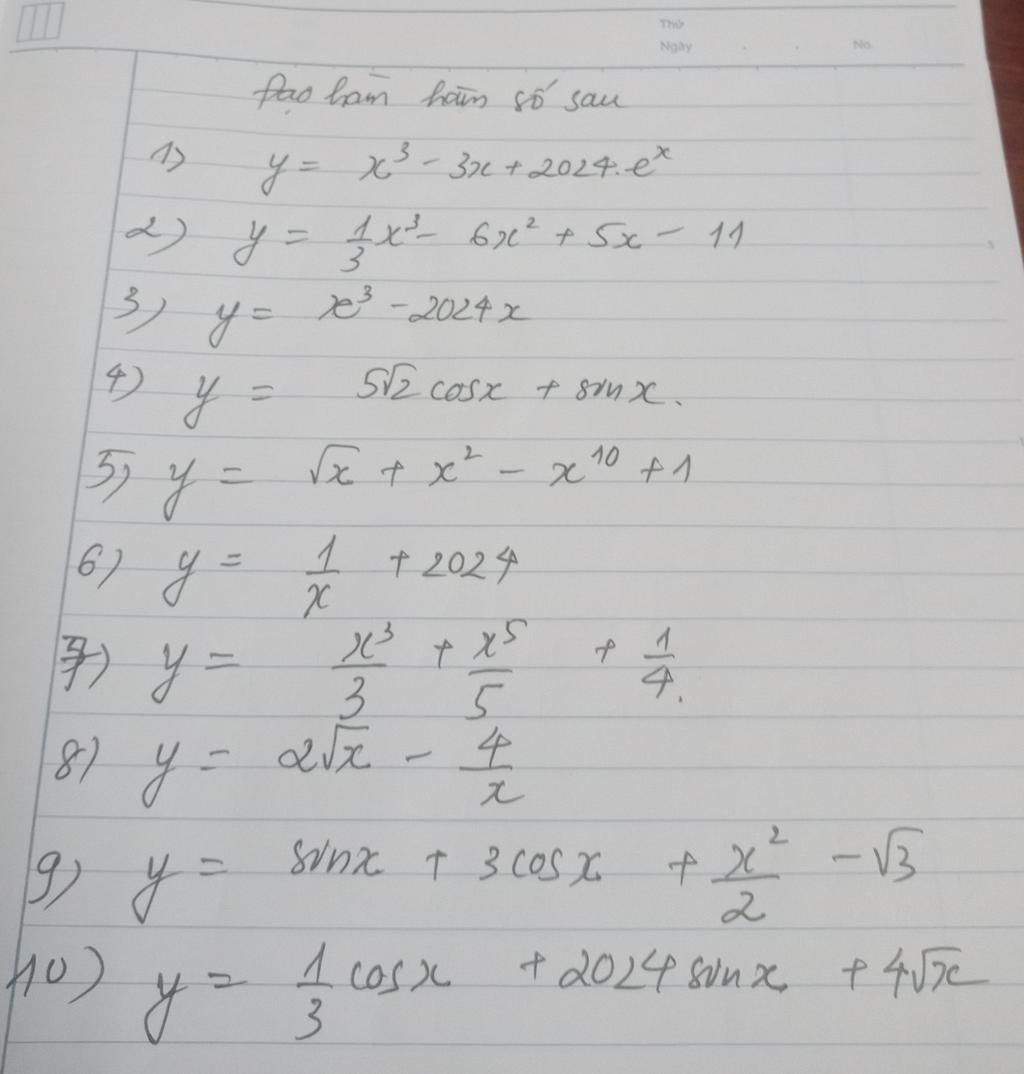 Thứ
Ngày . . No.
Đạo hàm hàm số sau
1) y = x³ - 3x + 2024.eˣ
2) y = 1/3 x³ - 6x² + 5x - 11
3) y = x³ - 2024x
4) y = 5√2 cosx + sinx.
5) y = √x + x² - x¹⁰ + 1
6) y = 1/x + 2024
7) y = x³/3 + x⁵/5 + 1/4.
8) y = 2√x - 4/x
9) y = sinx + 3cosx + x²/2 - √3
10) y = 1/3 cosx + 2024 sinx + 4√x